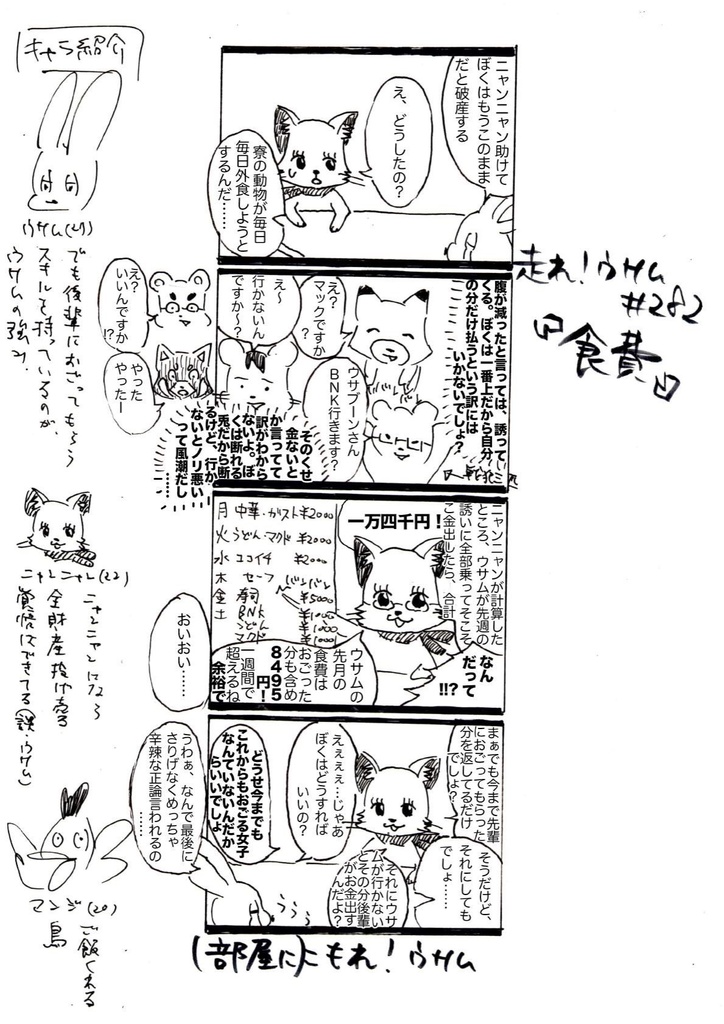 走れ！ウサム
#282
『食費』
ニャンニャン助けて
ぼくはもうこのまま
だと破産する
え、どうしたの？
寮の動物が毎日
毎日外食しようと
するんだ……
腹が減ったと言っては、誘って
くる。ぼくは一番上だから自分
の分だけ払うという訳には
いかないでしょ？
ウサプーンさん
BNK行きます？
え？
マックですか
え〜
行かないん
ですか〜？
え？
いいんですか
!?
やった
やったー
そのくせ
金ないと
か言ってて
訳がわから
ないよ。ぼ
くは断れる
兎だから断
るけど、行か
ないとノリ悪い
って風潮だし
ニャンニャンが計算した
ところ、ウサムが先週の
誘いに全部乗ってそこそ
こ金出したら、合計
一万四千円！
月 中華・ガスト ¥2000
火 うどん・マクド ¥2000
水 ココイチ ¥2000
木 セーフ
金 寿司 ¥5000
土 BNK ¥1000
うどん
マクド ¥1000
なん
だって
!!?
ウサムの
先月の
食費は
おごった
分も含め
8495
円！
一週間で
超えるね
余裕で
おいおい……
まぁでも今まで先輩
におごってもらった
分を返してるだけ
でしょ？
そうだけど、
それにしても
でしょ……
それにウサ
ムが行かない
とその分後輩
がお金出す
んだよ？
えぇぇぇ…じゃあ
ぼくはどうすれば
いいの？
どうせ今までも
これからもおごる女子
なんていないんだか
らいいでしょ
うわぁ、なんで最後に
さりげなくめっちゃ
辛辣な正論言われるの
ううう
(部屋に)こもれ！ウサム
キャラ紹介
ウサム(21)
でも後輩におごってもらう
スキルを持っているのが、
ウサムの強み.
ニャンニャン(22)
ニャンニャンになら
全財産投げ売る
覚悟はできてる(談:ウサム)
マンジ(20)
ご飯くれる
鳥